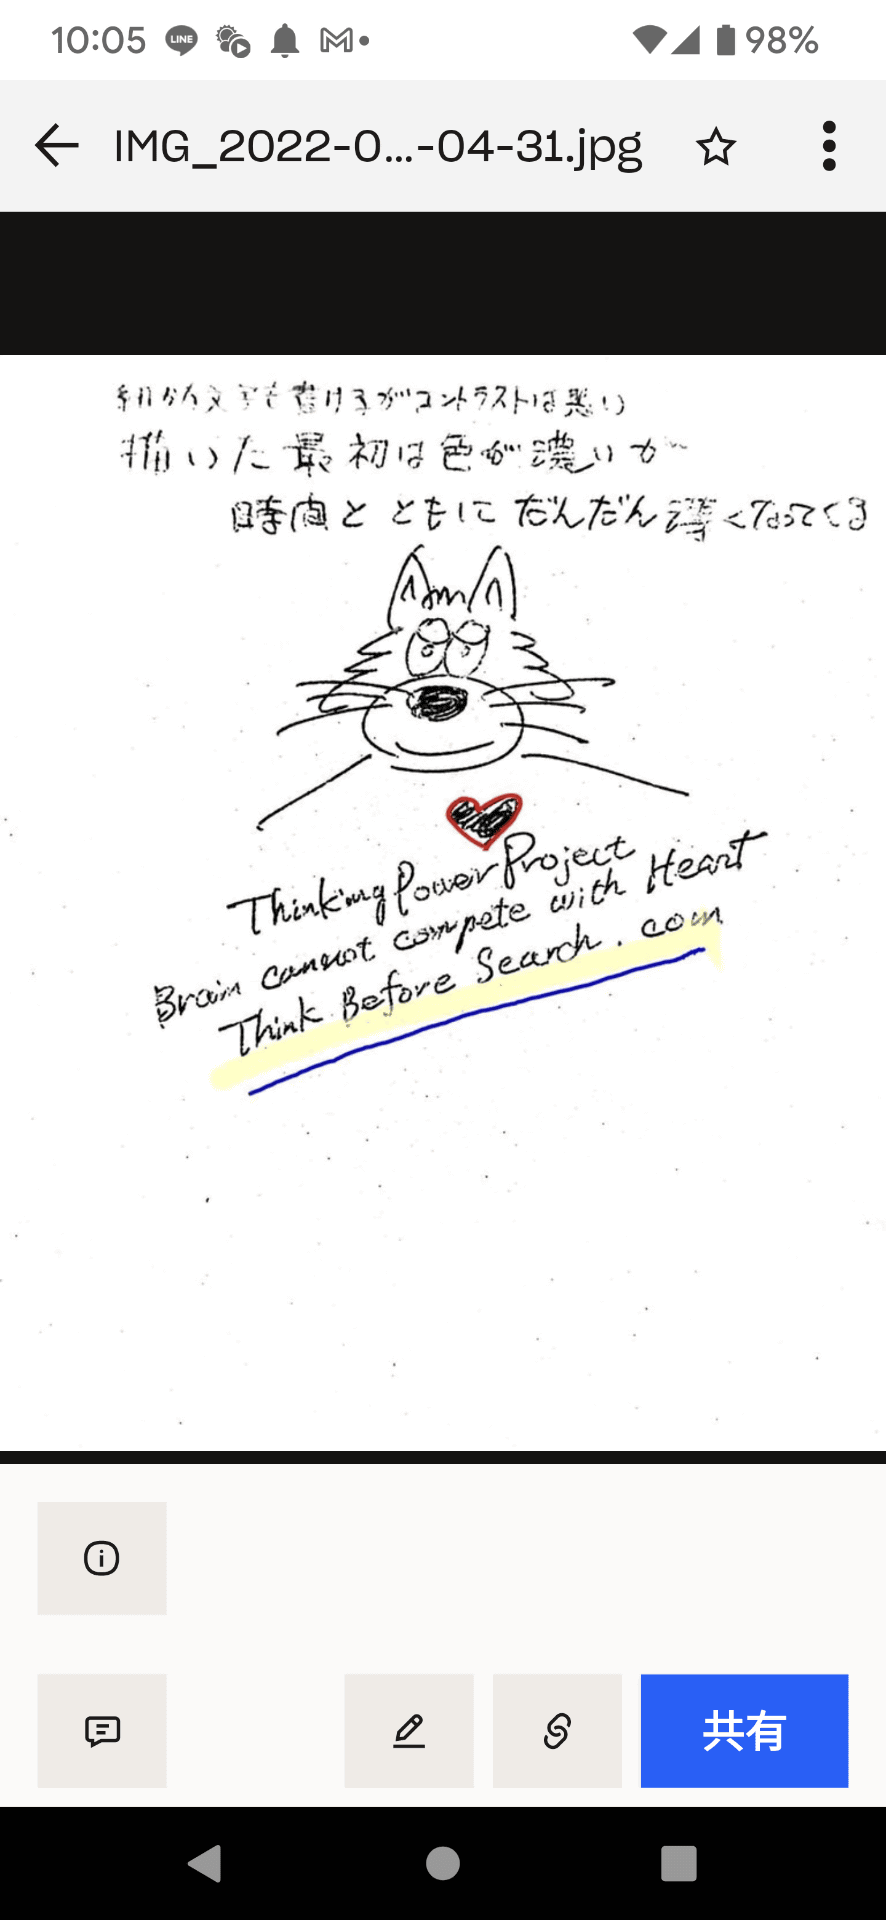 10:05 LINE 98%
IMG_2022-0...-04-31.jpg
細かな文字も書けるがコントラストは悪い
描いた最初は色が濃いが
時間とともにだんだん薄くなってくる
Thinking Power Project
Brain cannot compete with Heart
Think Before Search.com
共有